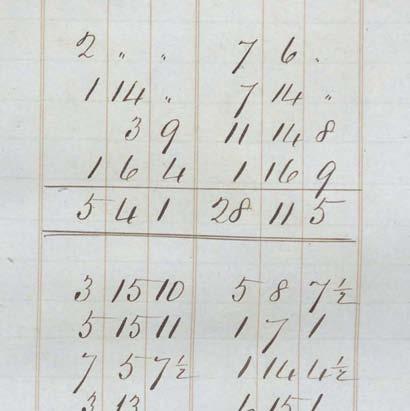 2 " " 7 6 "
1 14 " 7 14 "
3 9 11 14 8
1 6 4 1 16 9
5 4 1 28 11 5
3 15 10 5 8 7½
5 15 11 1 7 1
7 5 7½ 1 14 4½
3 13 6 15 1